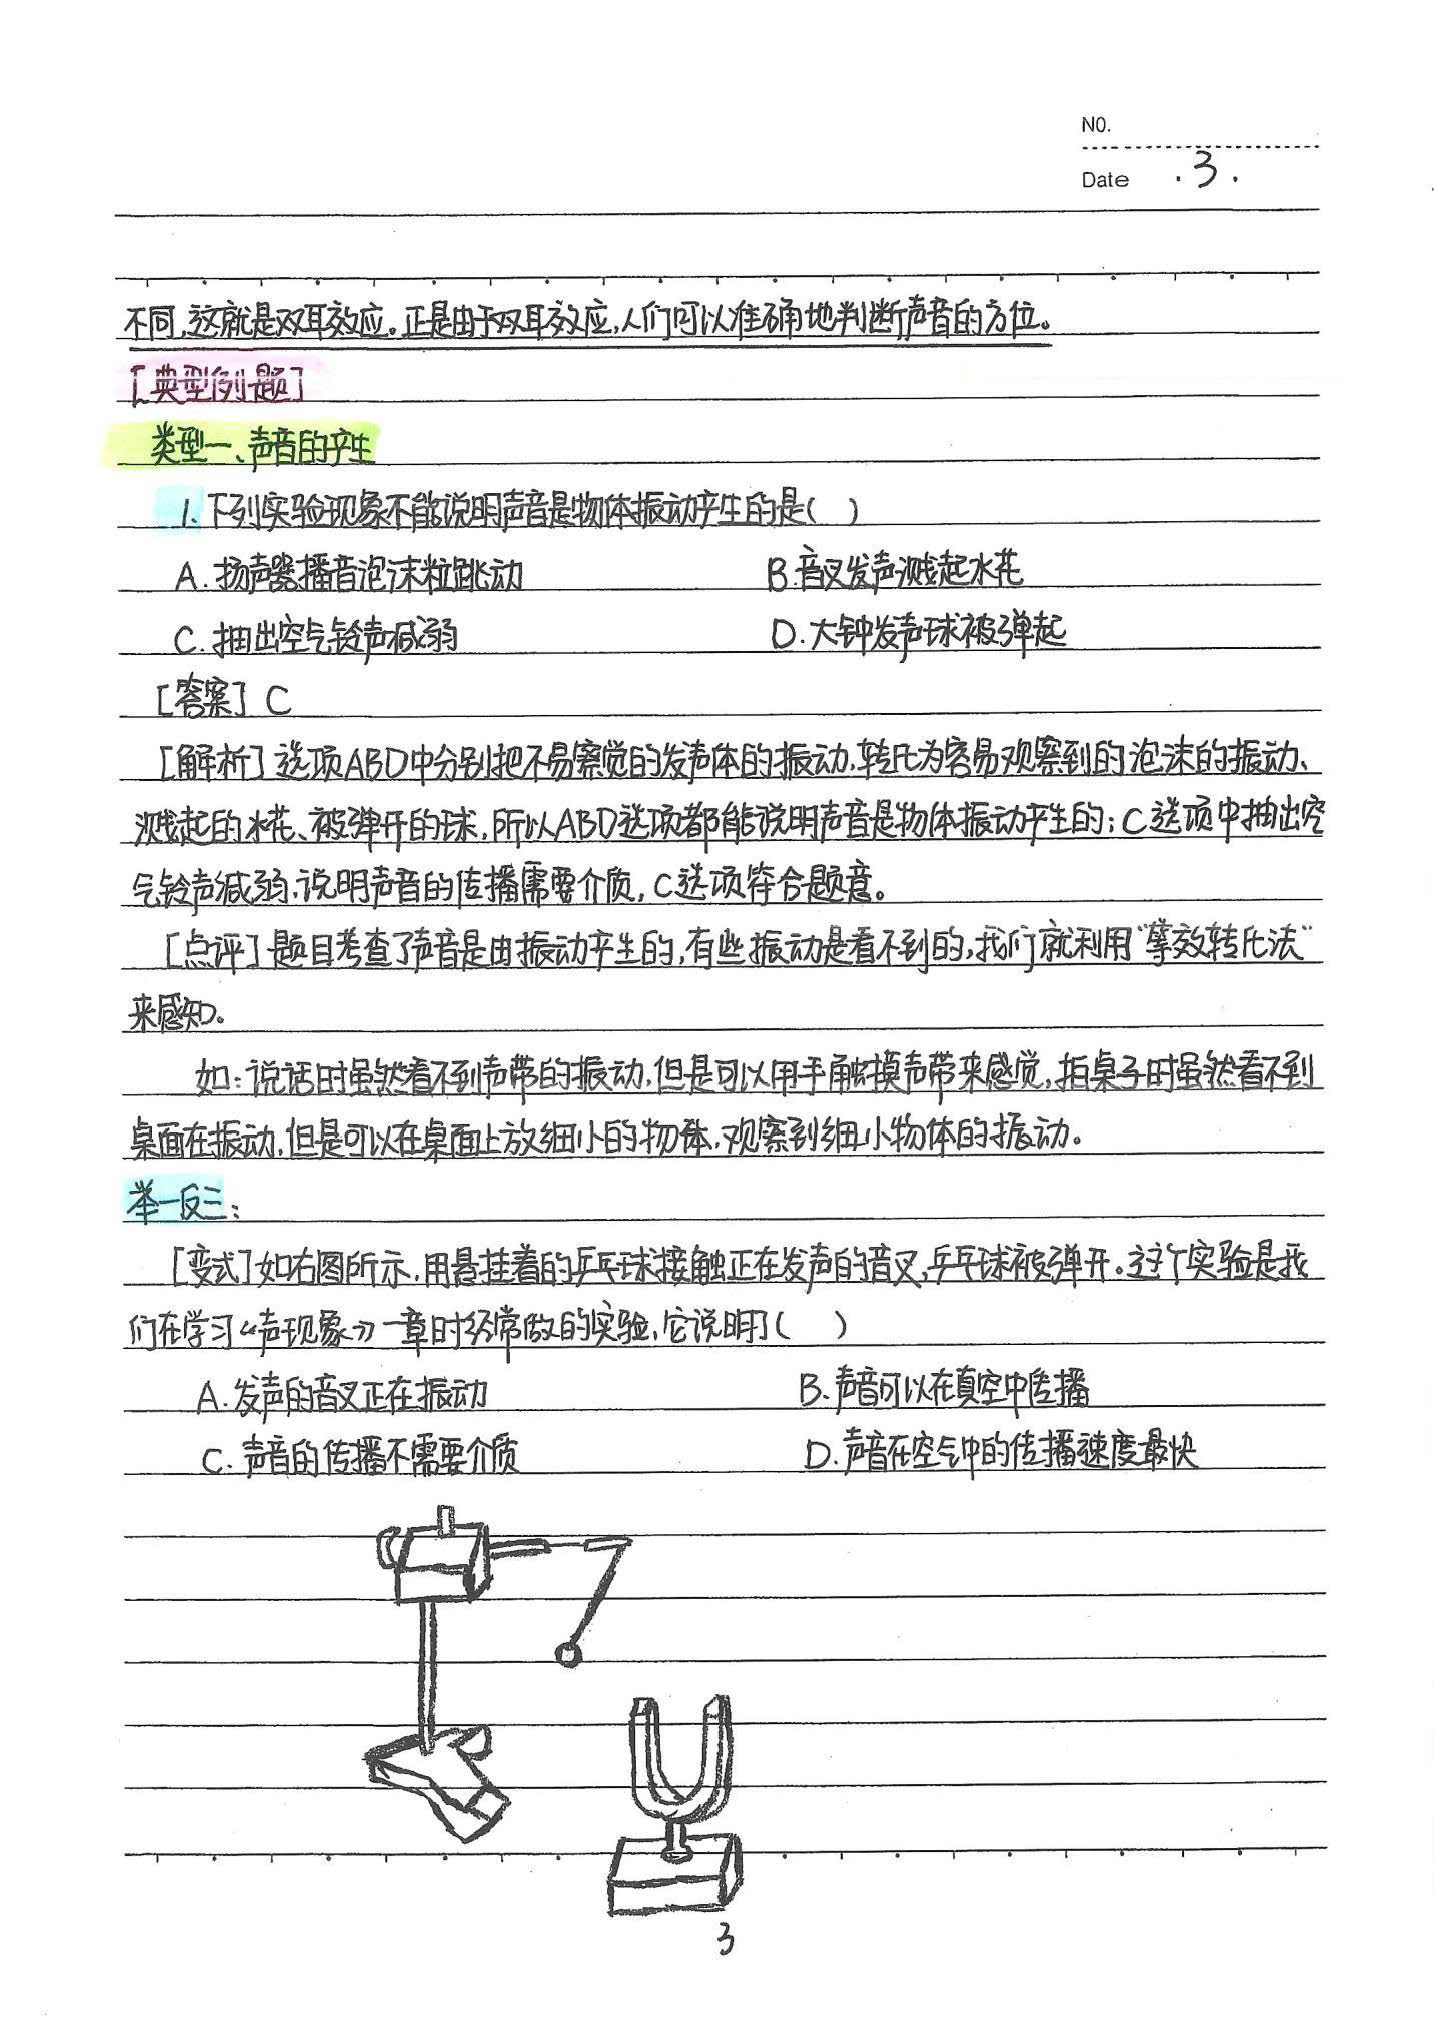 NO.
Date .3.
不同,这就是双耳效应。正是由于双耳效应,人们可以准确地判断声音的方位。
[典型例题]
类型一、声音的产生
1.下列实验现象不能说明声音是物体振动产生的是( )
A.扬声器播音泡沫粒跳动 B.音叉发声溅起水花
C.抽出空气铃声减弱 D.大钟发声球被弹起
[答案] C
[解析]选项ABD中分别把不易察觉的发声体的振动,转化为容易观察到的泡沫的振动、
溅起的水花、被弹开的球,所以ABD选项都能说明声音是物体振动产生的;C选项中抽出空
气铃声减弱,说明声音的传播需要介质,C选项符合题意。
[点评]题目考查了声音是由振动产生的,有些振动是看不到的,我们就利用“等效转化法”
来感知。
如:说话时虽然看不到声带的振动,但是可以用手触摸声带来感觉,拍桌子时虽然看不到
桌面在振动,但是可以在桌面上放细小的物体,观察到细小物体的振动。
举一反三:
[变式]如右图所示,用悬挂着的乒乓球接触正在发声的音叉,乒乓球被弹开。这个实验是我
们在学习《声现象》一章时经常做的实验,它说明了( )
A.发声的音叉正在振动 B.声音可以在真空中传播
C.声音的传播不需要介质 D.声音在空气中的传播速度最快
3